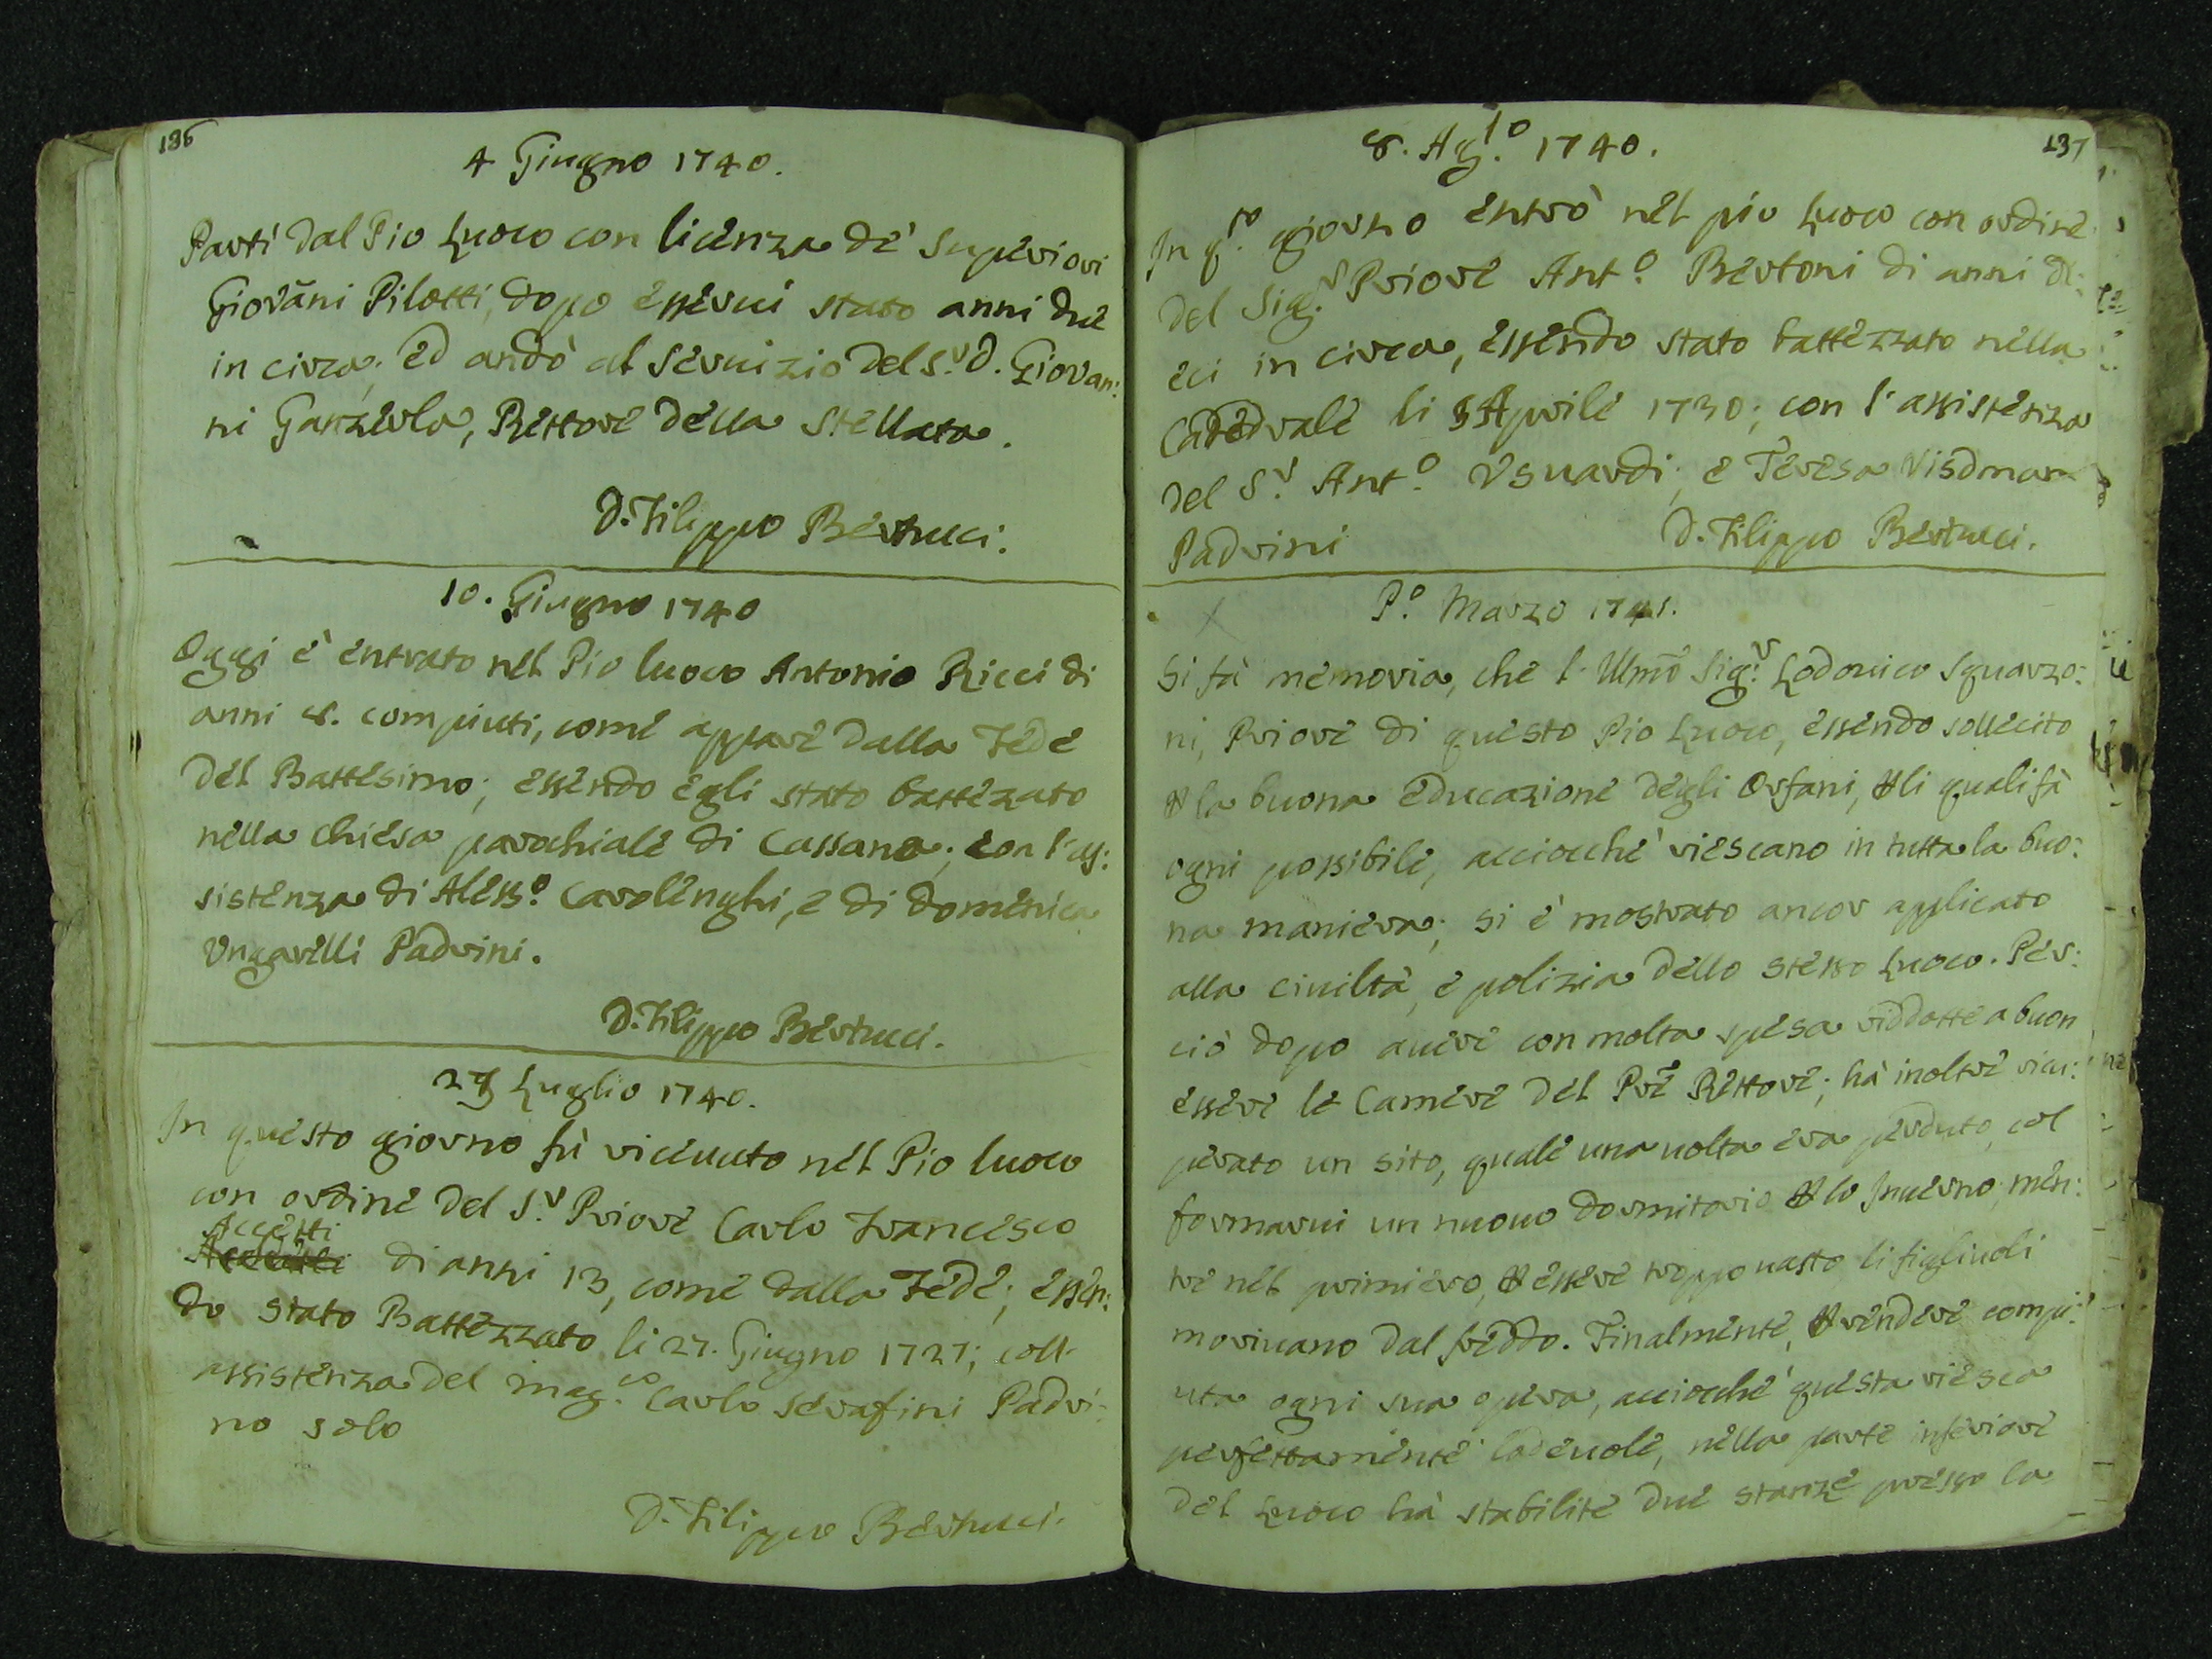 136
4 Giugno 1740.
Partì dal Pio Luoco con licenza de' Superiori
Giovãni Pilotti, dopo esserui stato anni due
in circa; ed andò al Seruizio del S.r D. Giovan:
ni Ganzerla, Rettore della Stellata.
D. Filippo Bertucci.
10. Giugno 1740
Oggi è entrato nel Pio luoco Antonio Ricci di
anni 8. compiuti, come appare dalla Fede
del Battesimo; essendo egli stato battezzato
nella chiesa parochiale di Cassana; con l'as:
sistenza di Aless.o Carolenghi, e di Domenica
Ungarelli Padrini.
D. Filippo Bertucci.
29 Luglio 1740.
In questo giorno fù riceuuto nel Pio luoco
con ordine del S.r Priore Carlo Francesco
Accetti
di anni 13, come dalla Fede; essen:
do stato Battezzato li 27. Giugno 1727; coll'
assistenza del mag.co Carlo Serafini Padri:
no solo
D. Filippo Bertucci.
137
8. Ag.to 1740.
In q.to giorno entrò nel pio Luoco con ordine
del Sig.r Priore Ant.o Bertoni di anni di:
eci in circa, essendo stato battezzato nella
Catedrale li Aprile 1730; con l'assistenza
del S.r Ant.o Usuardi, e Teresa
Padrini
D. Filippo Bertucci.
P.o Marzo 1741.
Si fà memoria, che l'Illmo Sig.r Lodouico Squarzo:
ni, Priore di questo Pio Luoco, essendo sollecito
p la buona educazione degli Orfani, p li quali fà
ogni possibile, acciocchè riescano in tutta la buo:
na maniera; si è mostrato ancor applicato
alla ciuiltà, e polizia dello stesso Luoco. Per:
ciò dopo auere con molta spesa riddotte a buon
essere le Camere del Pre Rettore; hà inoltre ricu:
perato un sito, quale una uolta era perduto, col
formarui un nuouo dormitorio p lo Inuerno; men:
tre nel primiero, p essere troppo uasto, li figliuoli
moriuano dal freddo. Finalmente, p rendere compi:
uta ogni sua opera, acciocchè questa riesca
perfettamente lodeuole, nella parte inferiore
del Luoco hà stabilite due stanze presso la